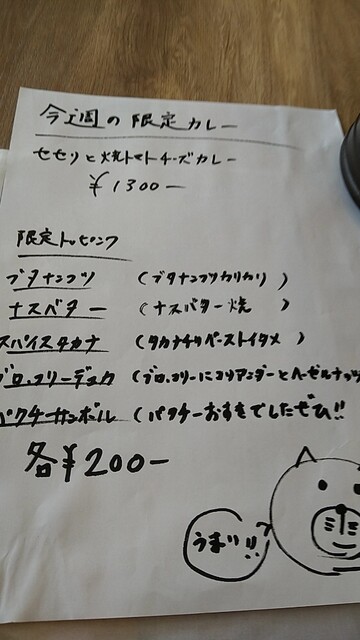 今週の限定カレー
セセリと焼トマトチーズカレー
¥1300ー
限定トッピング
ブタナンコツ (ブタナンコツカリカリ)
ナスバター (ナスバター焼)
スパイスタカナ (タカナチリペーストイタメ)
ブロッコリーデュカ (ブロッコリーにコリアンダーとヘーゼルナッツ
パクチーサンボル (パクチーおすきでしたぜひ!!
各¥200ー
うまい!!